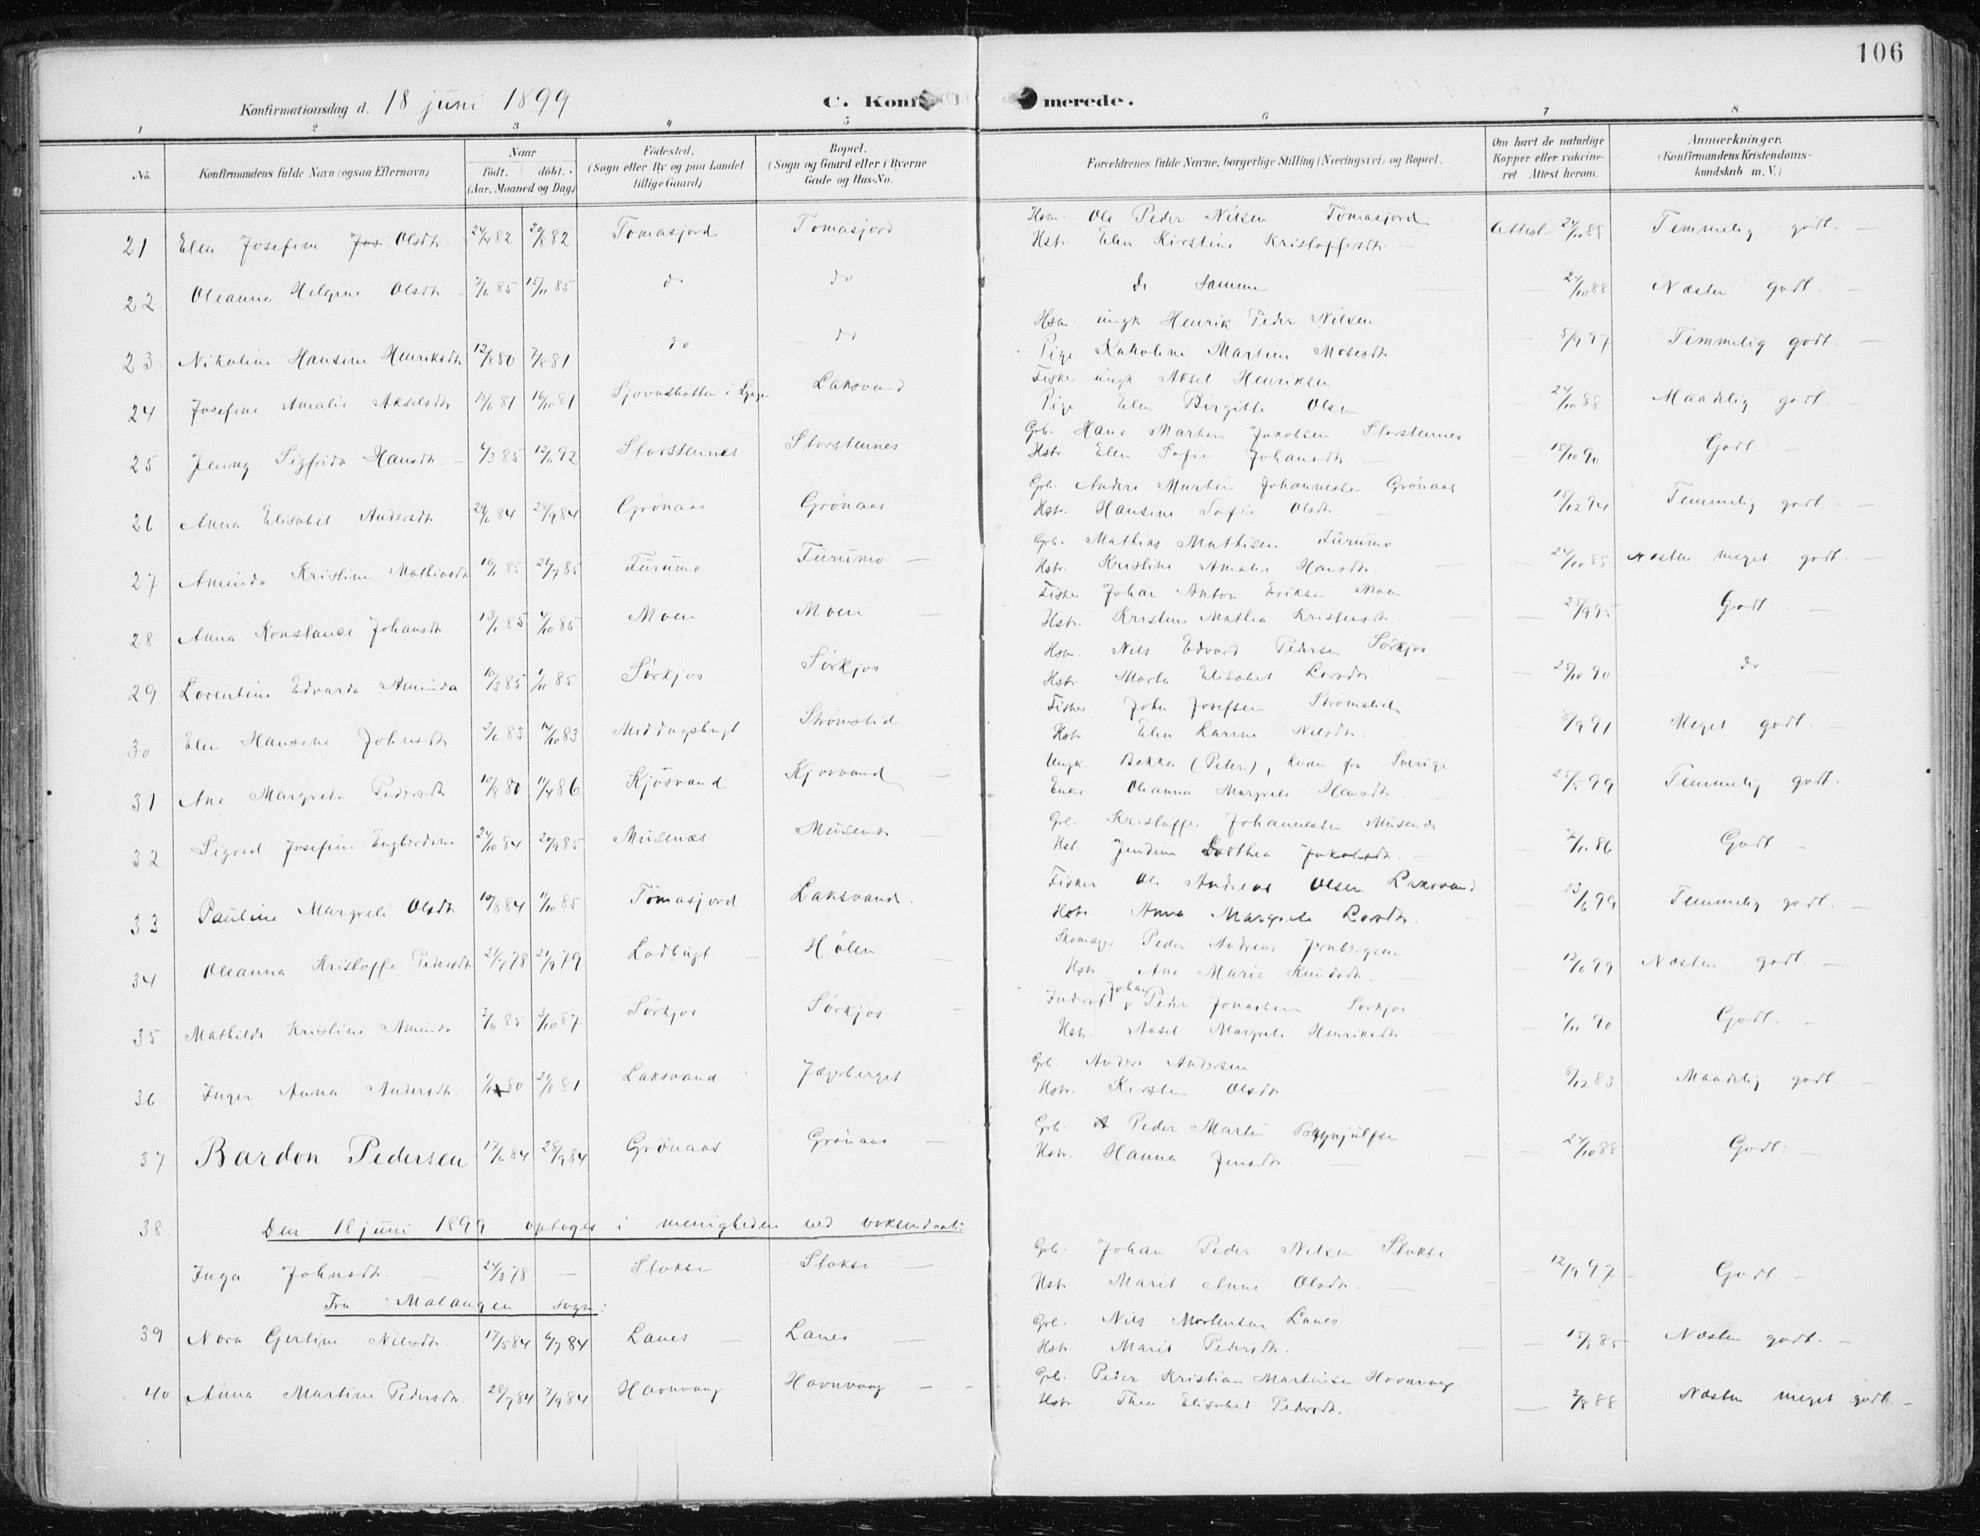 106
Konfirmationsdag d. 18 juni 1899
C. Konf merede.
1 2 3 4 5 6 7 8
No. Konfirmandens fulde Navn (ogsaa Efternavn) Naar født. døbt. (Aar, Maaned og Dag) Fødested. (Sogn eller By og paa Landet tillige Gaard) Bopæl. (Sogn og Gaard eller i Byerne Gade og Hus-No. Forældrenes fulde Navne, borgerlige Stilling (Næringsvei) og Bopæl. Om havt de naturlige Kopper eller vakcineret Attest herom. Anmærkninger. (Konfirmandens Kristendomskundskab m. V.)
21 Elen Josefine Olsdtr. Tomasjord Tomasjord Hsm. Ole Peder Nilsen Tomasjord
Hstr. Elen Kirstine Kristoffersdtr. Attest 24/10 88 Temmelig godt. —
22 Oleanna Helgine Olsdtr. 15/11 85 do do de samme — 24/10 88 Næsten godt. —
23 Nikoline Hansine Henriksdtr 12/8 80 7/8 81 do do Hsm. ungk Henrik Peder Nilsen
Pige Karoline Martine Mosesdtr 8/9 97 Temmelig godt. —
24 Josefine Amalie Akselsdtr 16/10 81 Laksvand Fisker ungk Aksel Henriksen
Pige Elen Birgitte Olsen 24/10 88 Maadelig godt.
25 Jenny Sigfrida Hansdtr. 4/3 85 12/6 92 Storstennes Storstennes Grb. Hans Martin Jakobsen Storstennes
Hstr. Elen Sofie Johansdtr. — 15/10 90 Godt. —
26 Anna Elisabet Andersdtr 29/6 84 28/9 84 Grønaas Grønaas Grb. Anders Martin Johannessen Grønaas
Hstr. Hansine Sofie Olsdtr. 15/12 94 Temmelig godt. —
27 Aminda Kristine Mathiasdtr 26/7 85 Furumo Furumo — Grb. Mathias Mathisen Furumo
Hstr. Kristine Amalie Hansdtr. — 24/10 85 Næsten meget godt. —
28 Anna Konstanse Johansdtr. 4/10 85 Moen Moen — Fisker Johan Anton Eriksen Moen
Hstr. Kristine Mathea Kristensdtr. 25/9 95 Godt. —
29 Lorentine Edvarda Aminda 10/5 85 Sørkjos Sørkjos Hsm. Nils Edvard Pedersen Sørkjos
Hstr. Marta Elisabet Larsdtr. 25/10 90 do —
30 Elen Hansine Johnsdtr. 2/6 83 Middagsbugt Strømslid Fisker John Josefsen Strømslid
Hstr. Elen Larine Nilsdtr. 8/9 91 Meget godt. —
31 Ane Margrete Pedersdtr. Kjosvand Kjosvand — Ungk Bekka (Peter), kvæn fra Sverige
Enke Oleanna Margrete Hansdtr. 25/5 99 Temmelig godt.
32 Sigvod Josefine Engbordine 24/10 84 20/9 85 Musenæs Grb. Kristoffer Johannessen
Hst. Jendine Dorthea Jakobsdtr. — 86 Godt —
33 Pauline Margrete Olsdtr 10/8 84 Tomasjord Laksvand. Fisker Ole Andreas Olsen Laksvand
Hstr. Anna Margrete Larsdtr. 13/6 99 Temmelig godt. —
34 Oleanna Kristoffa Pedersdtr 21/7 78 21/9 79 Lodbugt — Hølen Skomager Peder Andreas Jernbergsen
Hstr. Ane Marie Knudsdtr. 12/6 99 Næsten godt. —
35 Mathilde Kristine Aminda 3/6 85 3/10 87 Sørkjos Sørkjos Inderst Johan Peder Jonassen Sørkjos
Hstr. Margrete Henriksdtr 1/11 90 Godt. —
36 Inger Anna Andersdtr. 80 21/8 81 Laksvand Jægerberget Grb. Anders Andersen
Hstr. Kirsten Olsdtr. 8/12 83 Maadelig godt. —
37 Bardon Pedersen 17/6 84 28/9 84 Grønaas Grønaas — Grb. Peder Martin Brynjulfsen
Hstr. Hanna Jensdtr. — 24/10 88 Godt. —
38 Den 18 juni 1899 optoges i menigheden ved voksendaab:
Inga Johnsdtr. — 24/3 78 — Slokse Slokse — Grb. Johan Peder Nilsen Slokse
Hstr. Marit Anne Olsdtr. — 12/9 97 — Godt. —
Fra Malangen sogn:
39 Nora Gerline Nilsdtr. 17/5 84 6/7 84 Lanes — Lanes — Grb. Nils Mortensen Lanes
Hstr. Marit Pedersdtr. — 15/5 85 Næsten godt. —
40 Anna Martine Pedersdtr. 28/7 84 7/9 84 Havnvaag Havnvaag — Grb. Peder Kristian Martinsen Havnvaag
Hstr. Thea Elisabet Pedersdtr. — 3/8 88 Næsten meget godt. —